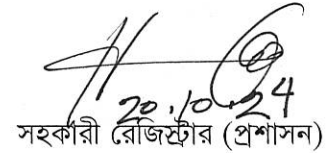 20.10.24
সহকারী রেজিস্ট্রার (প্রশাসন)